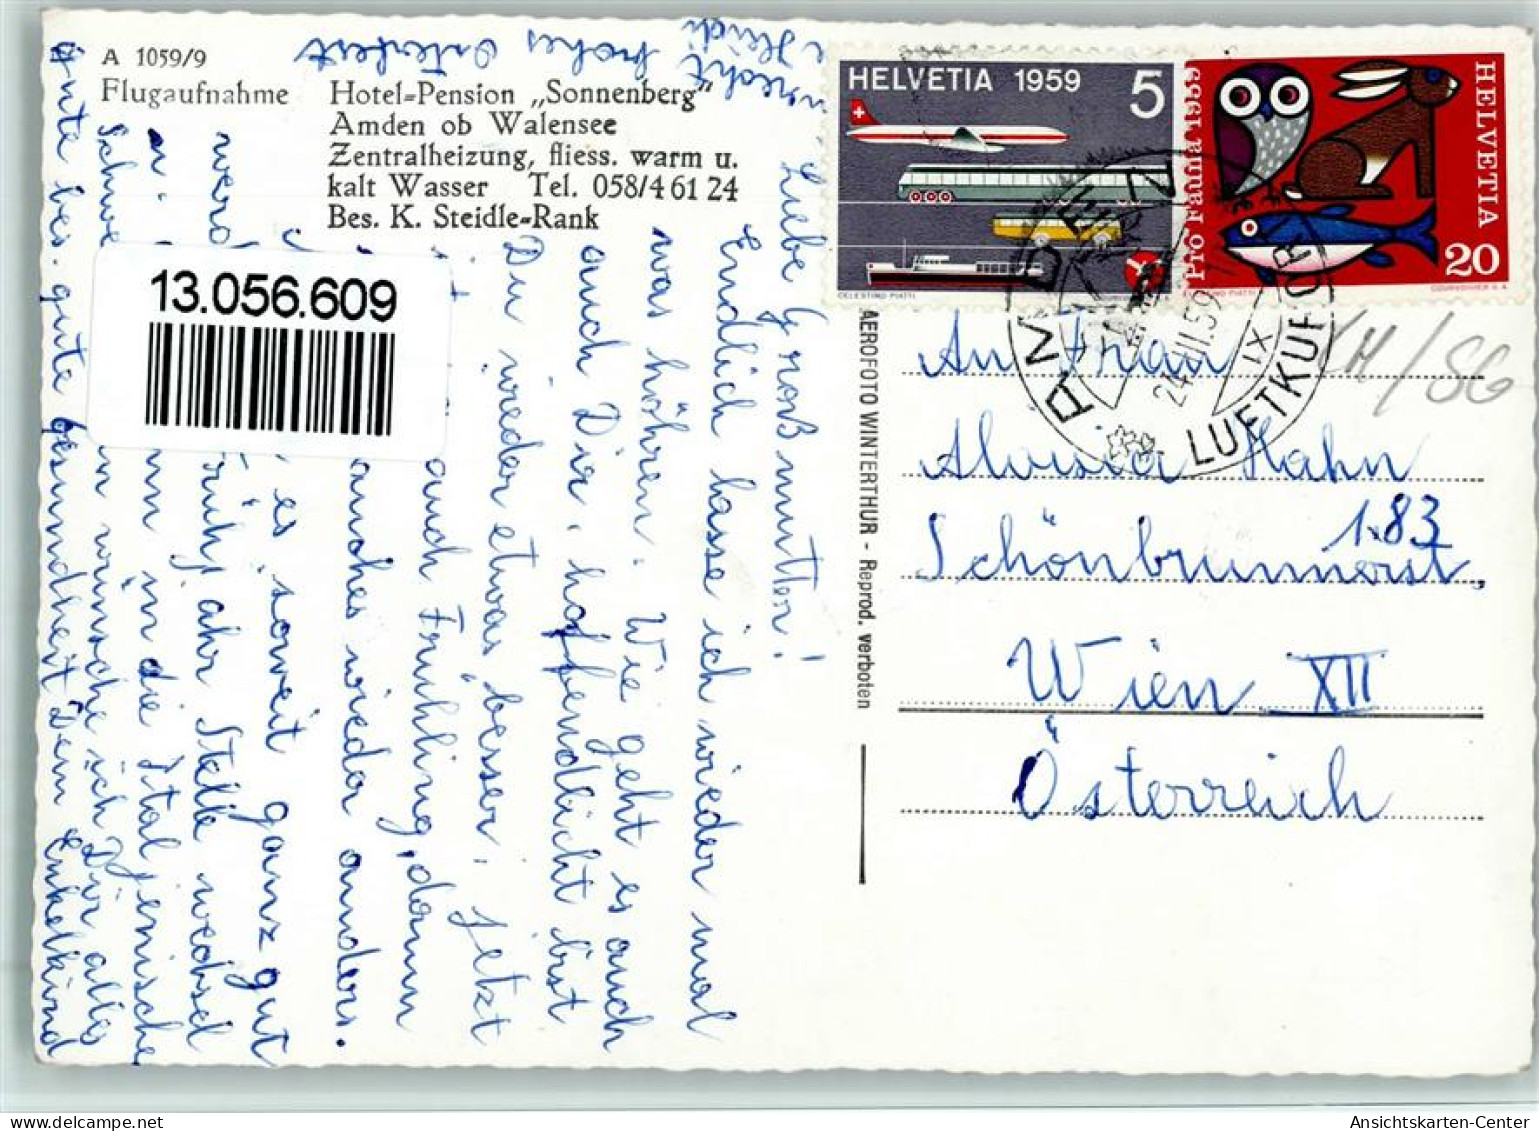 A 1059/9
Flugaufnahme
Hotel-Pension „Sonnenberg"
Amden ob Walensee
Zentralheizung, fliess. warm u.
kalt Wasser Tel. 058/4 61 24
Bes. K. Steidle-Rank
13.056.609
Liebe Großmutter!
Endlich lasse ich wieder mal
was hören. Wie geht es auch
auch Dir, hoffendlicht bist
Du wieder etwas besser. jetzt
auch Frühling, dann
manches wieder anders.
es soweit ganz gut
werd Frühjahr Stelle wechsel
n. in die Ital jenische
Schwe wünsche ich Dir alles
gute bes. gute Gesundheit Dein Enkelkind
frohes Osterfest
AEROFOTO WINTERTHUR - Reprod. verboten
HELVETIA 1959 5
CELESTINO PIATTI
Pro Fauna 1959
HELVETIA
20
COURVOISIER S.A.
AMDEN
LUFTKURORT
An Frau
Aloisia Hahn
183
Schönbrunnerst,
Wien XII
Österreich
CH/SG
oldthing
Ansichtskarten-Center